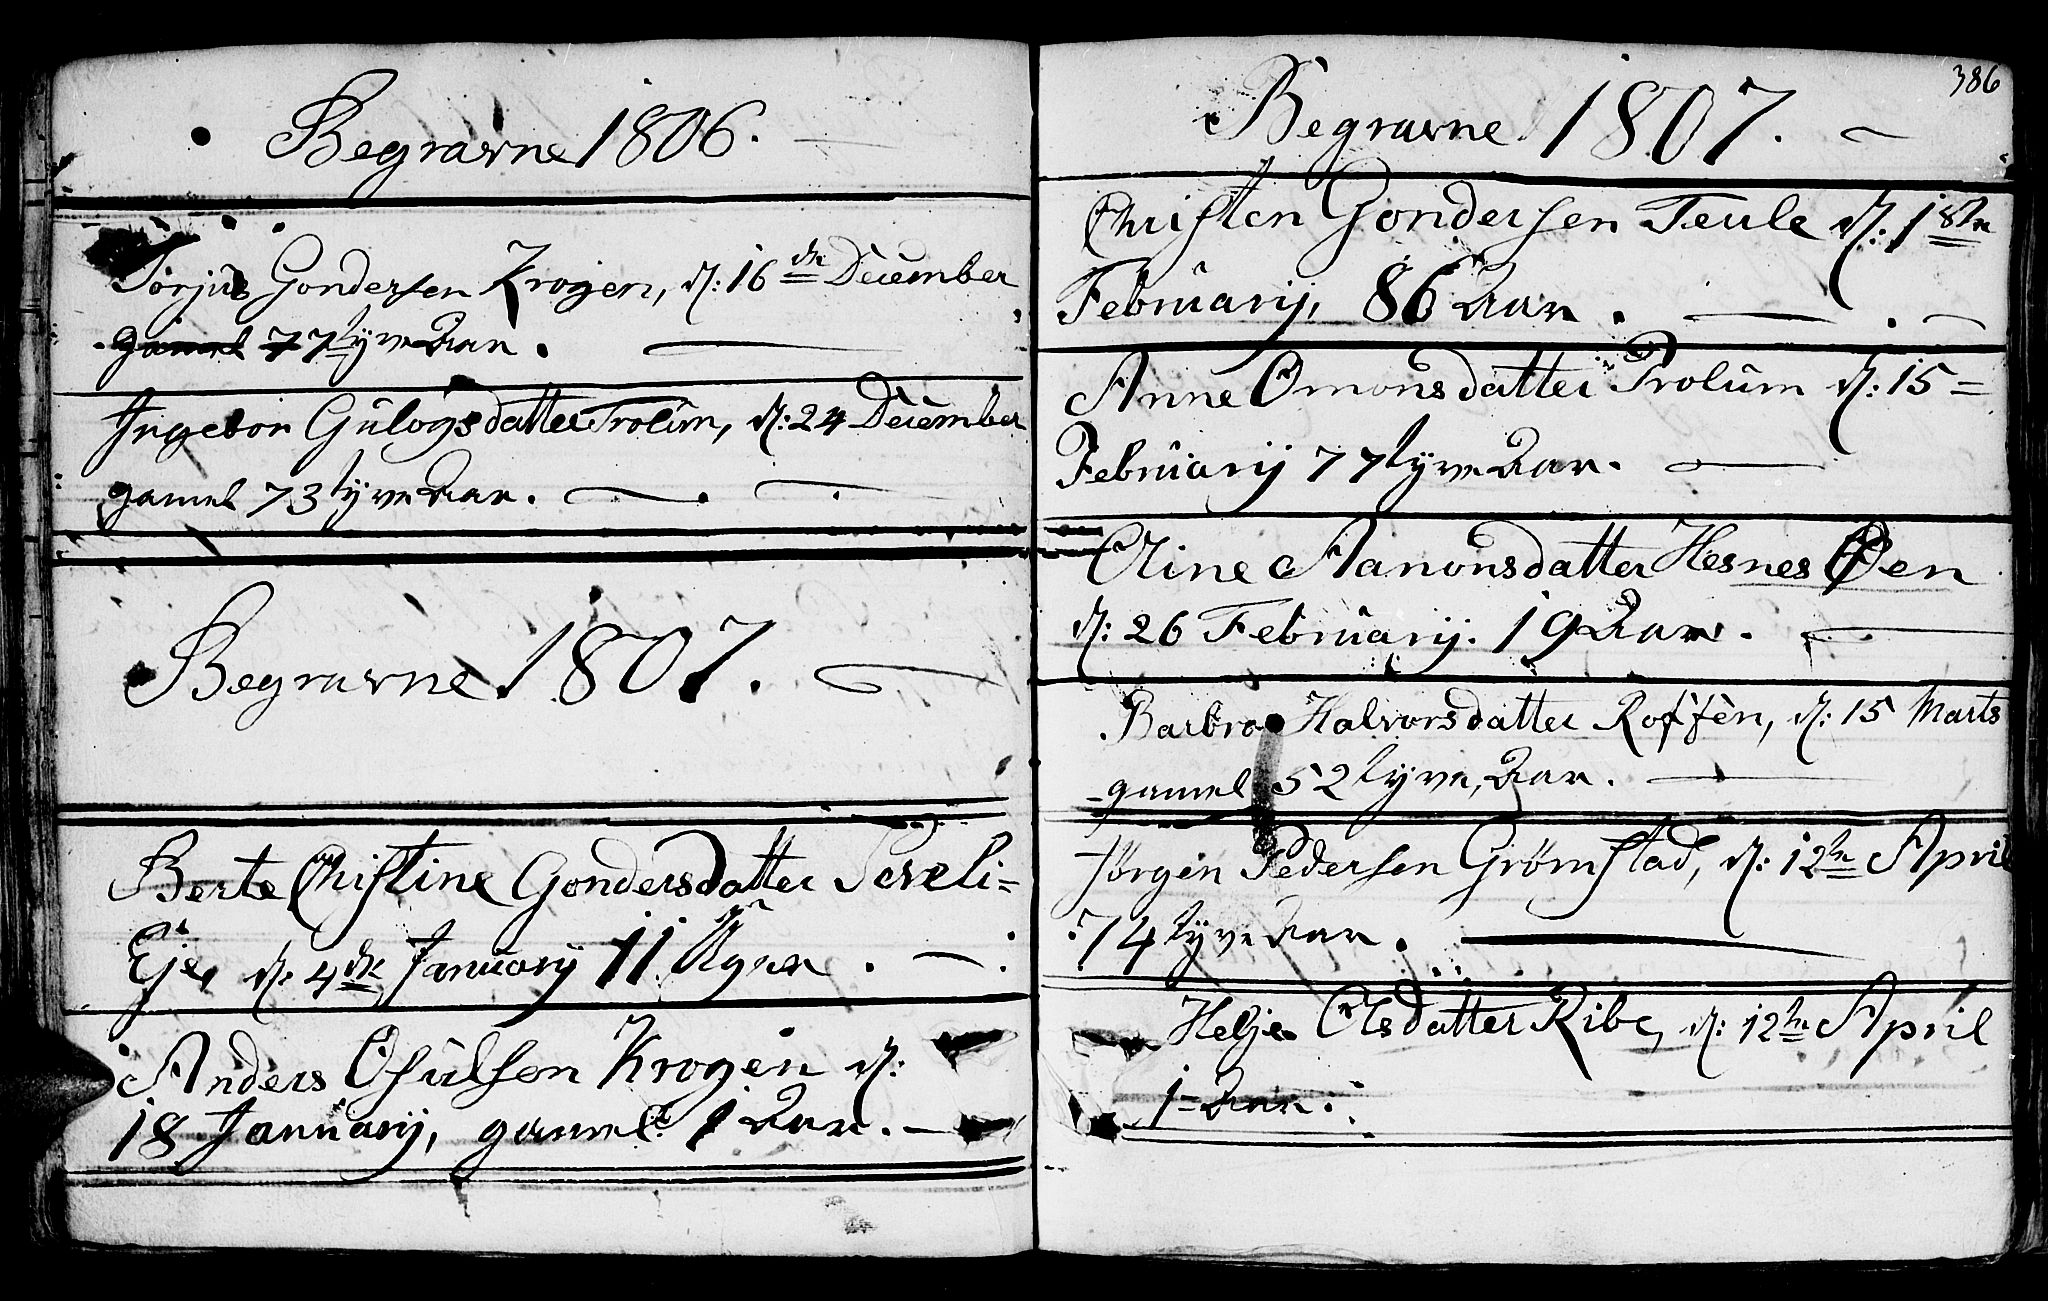 Begravne 1806.
Torjus Gondersen Krogen, d: 16de December
gamel 77tyve Aar.
Ingebor Gulogsdatter Trolum, d: 24 December
gamel 73tyve Aar.
Begravne 1807.
Berte Christine Gondersdatter Teveli=
Eje, d: 4de Januarij 11 Uger.
Anders Osulsen Krogen d:
18 Januarij, gamel 1 Aar.
386
Begravne 1807.
Christen Gondersen Teule d: 18de
Februarij, 86 Aar.
Anne Omonsdatter Trolum d: 15=
Februarij 77tyve Aar.
Eline Aanonsdatter Hesnes Øen
d: 26 Februarij. 19 Aar.
Barbro Halvorsdatter Roffen, d: 15 Marts
gamel 52tyve, Aar.
Jørgen Pedersen Grømstad, d: 12te April
74tyve Aar.
Helje Olsdatter Ribe, d: 12te April
1=Aar.